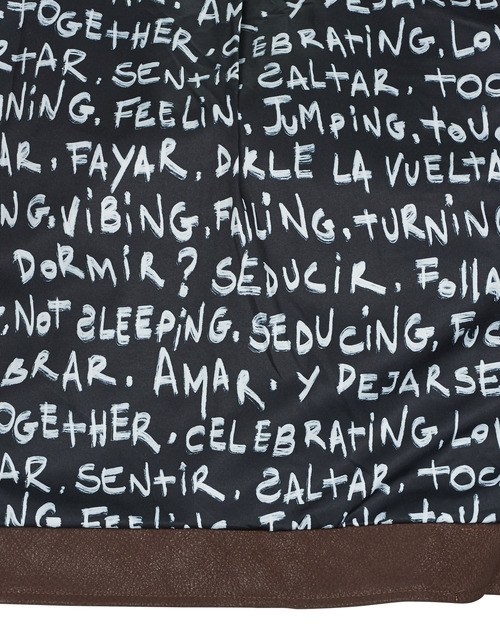 TOGETHER, CELEBRATING, LO
RTAR, SENTIR, SALTAR, TOC
NING, FEELIN, JUMPING, TOU
AR, FAYAR, DARLE LA VUELTA
NG, VIBING, FAILING, TURNING
DORMIR? SEDUCIR, FOLLA
, NOT SLEEPING, SEDUCING, FUC
BRAR, AMAR, Y DEJARSE
OGETHER, CELEBRATING, LO
AR, SENTIR, SALTAR, TOC
NG, FEELING, JUMPING, TOU